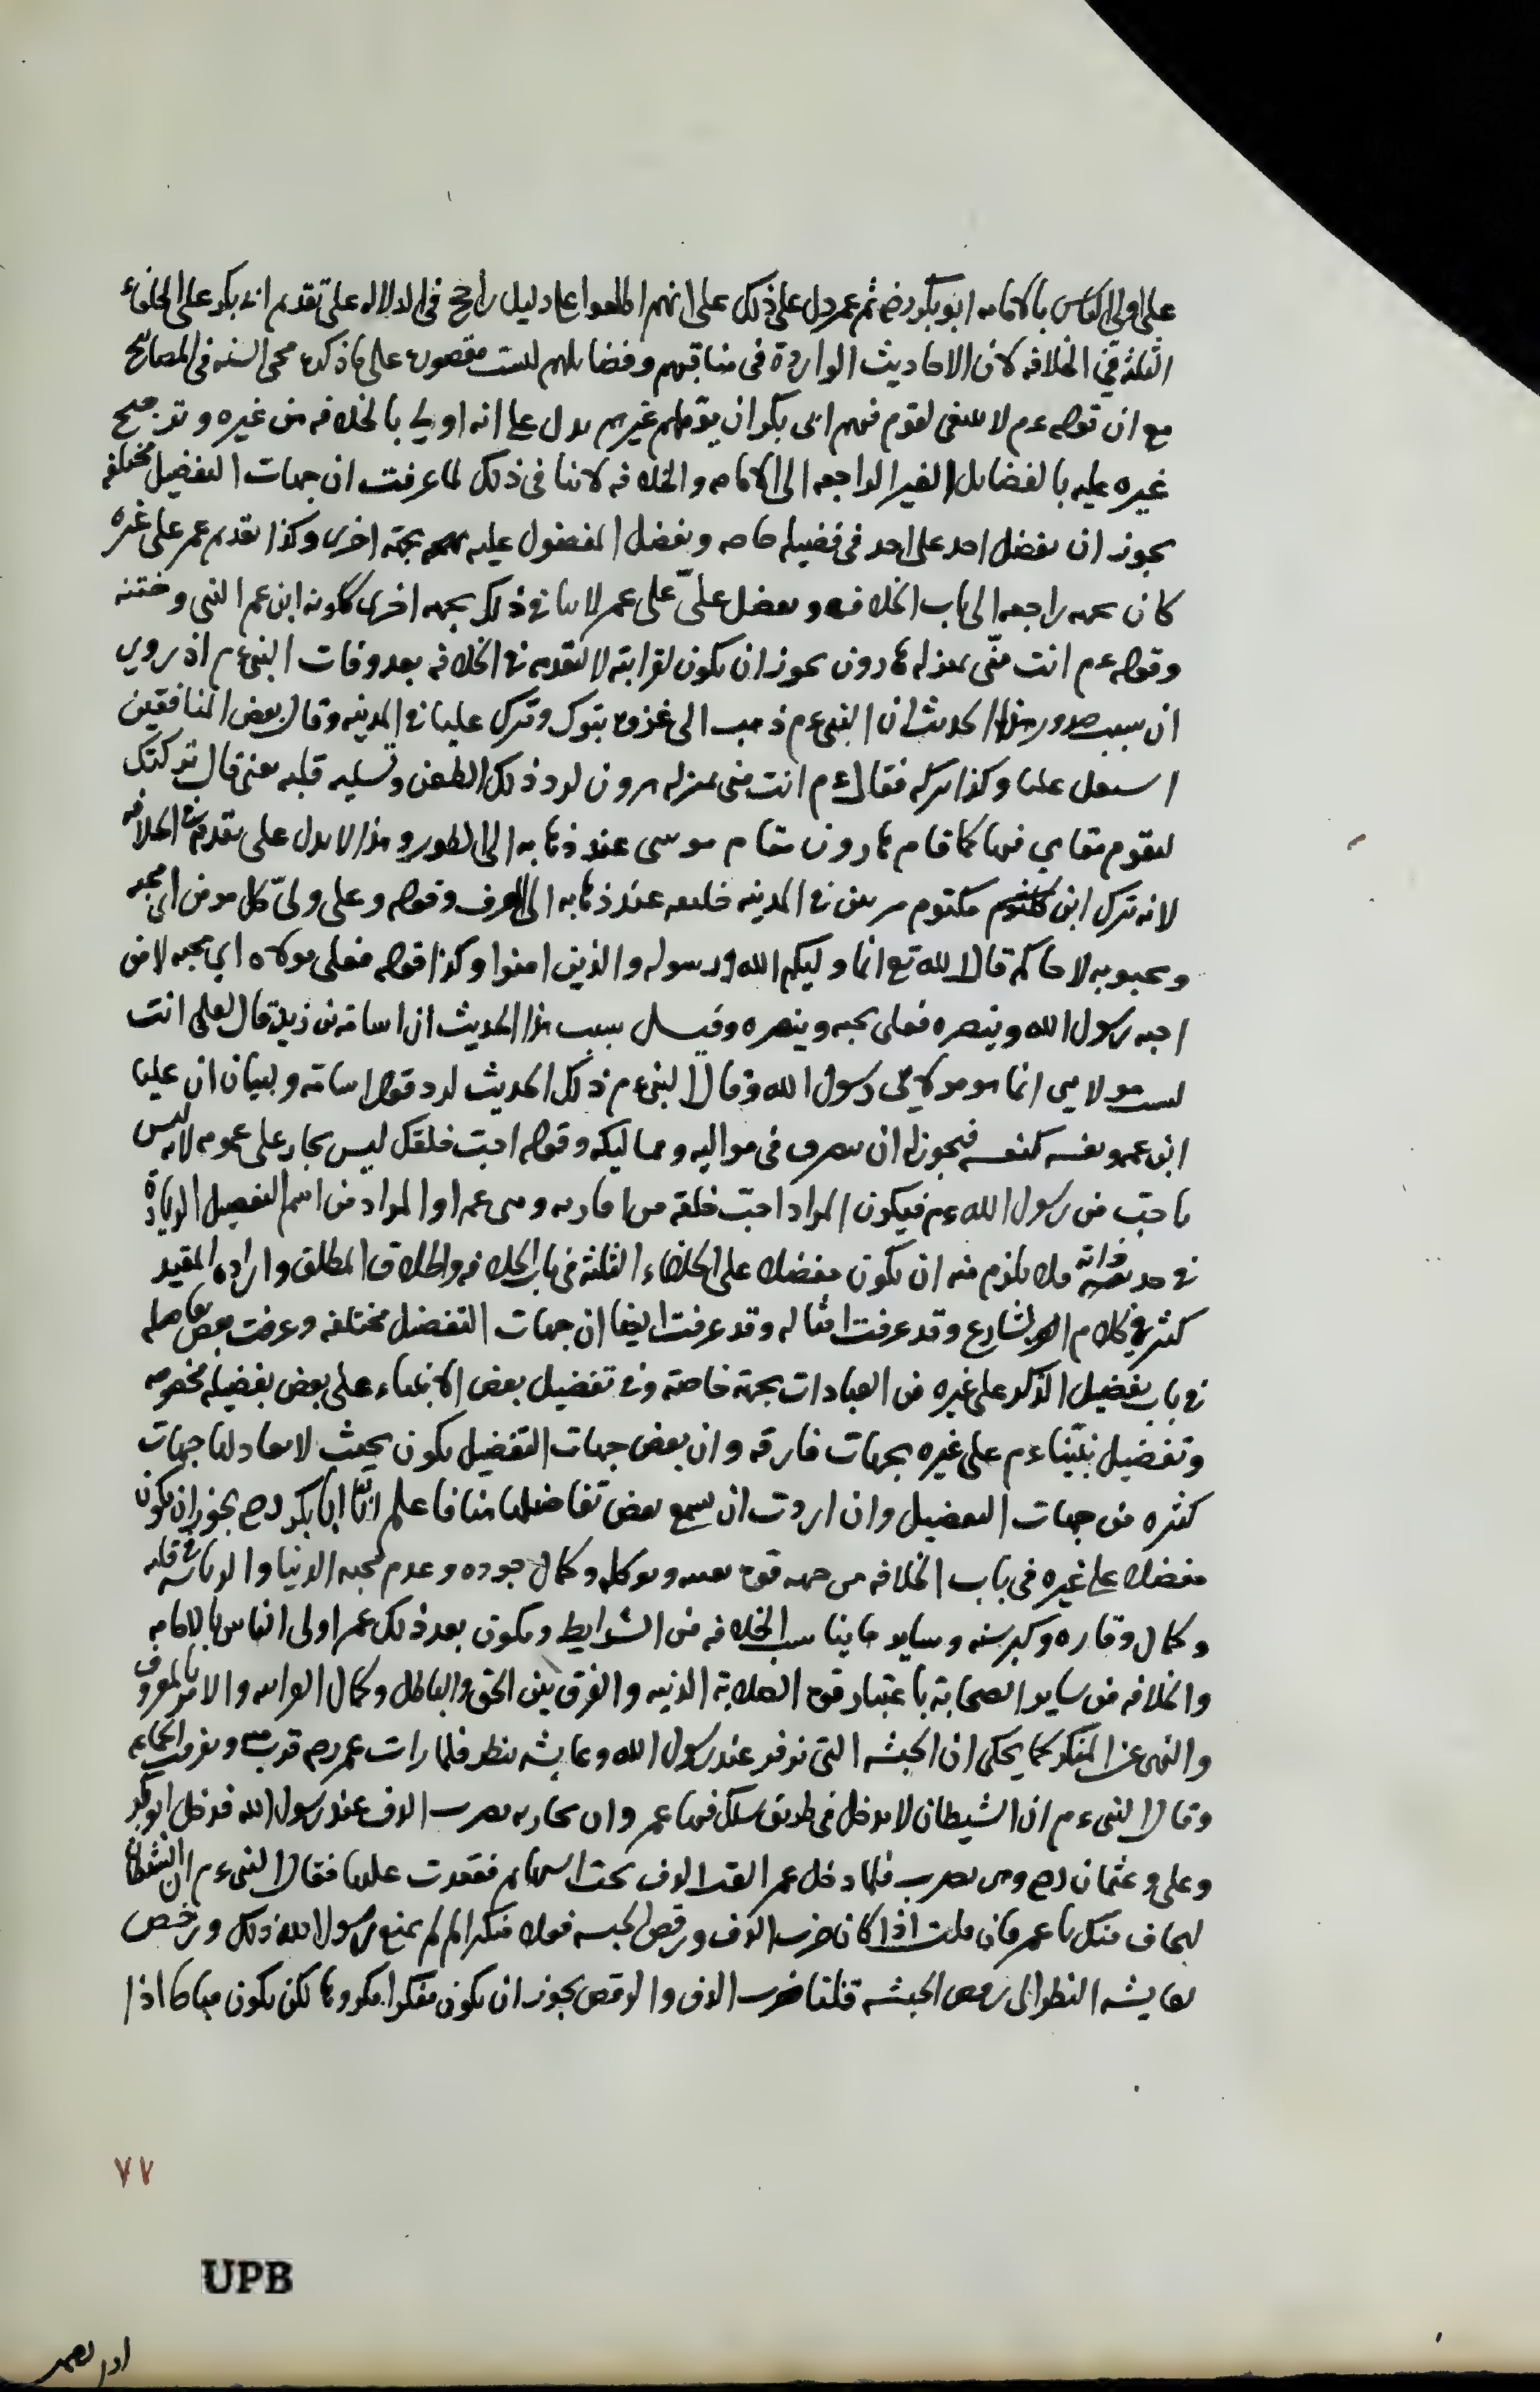 على اولى الناس بالامامه ابو بكر رضه ثم عمر دل على ذلك على انهم اطلعوا على دليل راجح فى الدلاله على تقديم ابى بكر على الخلفاء
الثلثه فى الخلافه لان الاحاديث الواردة فى مناقبهم وفضايلهم ليست مقصورة على ما ذكره محى السنه فى المصابيح
مع ان قوله ءم لا ينبغى لقوم فيهم ابى بكر ان يؤمهم غيرهم يدل على انه اولى بالخلافه من غيره وترجيح
غيره عليه بالفضايل الغير الراجعه الى الامامه والخلافه لا ينافى ذلك لما عرفت ان جهات التفضيل مختلفه
يجوز ان يفضل احد على احد فى فضيله خاصه ويفضل المفضول عليه بجهة اخرى وكذا تقديم عمر على غيره
كان بجهه راجعه الى باب الخلافه وتفضل علىّ على عمر لا ينافى ذلك بجهه اخرى ككونه ابن عم النبى وختنه
وقوله ءم انت منّى بمنزله هارون يجوز ان يكون لقرابته لا لتقدمه فى الخلافه بعد وفات النبى ءم اذ روى
ان سبب صدور هذا الحديث ان النبى ءم ذهب الى غزوه تبوك وترك عليا فى المدينه وقال بعض المنافقين
استقل عليا وكذا تركه فقال ءم انت منى بمنزله هرون لرد ذلك الطعن وتسليه قلبه يعنى قال تركتك
لتقوم مقامى فيها كما قام هارون مقام موسى عند ذهابه الى الطور وهذا لا يدل على تقدمه فى الخلافه
لانه ترك ابن مكتوم مرتين فى المدينه خليفه عند ذهابه الى وقوله وعلى ولىّ كل مومن اى محبه
ومحبوبه لا حاكم قال الله تع انما وليكم الله ورسوله والذين امنوا وكذا قوله فعلى مولاه اى محبه لا من
احبه رسول الله وينصره فعلى يحبه وينصره وقيل سبب هذا الحديث ان اسامة بن زيد قال لعلى انت
لست مولاى انما هو مولاى رسول الله وقال النبى ءم ذلك الحديث لرد قول اسامة وبيان ان عليا
ابن عمه ونفسه كنفسه فيجوز له ان يتصرف فى مواليه ومماليكه وقوله احبّ خلقك ليس بجار على عمومه لانه ليس
باحبّ من رسول الله ءم فيكون المراد احبّ خلقه من اقاربه وبنى عمه او المراد من اسم التفضيل الزيادة
فى حد ذاته فلا يلزم منه ان يكون مفضلا على الخلفاء الثلثه فى باب الخلافه واطلاق المطلق واراده المقيد
كثير فى كلام الشارع وقد عرفت امثاله وقد عرفت ايضا ان جهات التفضل مختلفه وعرفت بعض تفاصيله
فى باب تفضيل الذكر على غيره من العبادات بجهة خاصة وفى تفضيل بعض الانبياء على بعض بفضيله مخصوصه
وتفضيل نبيّنا ءم على غيره بجهات فارقه وان بعض جهات التفضيل يكون بحيث لا يعادلها جهات
كثيره من جهات التفضيل وان اردت ان تسمع بعض تفاضيلها منا فاعلم ان ابا بكر رضه يجوز ان يكون
مفضلا على غيره فى باب الخلافه من جهه قوة يقينه وتوكله وكمال جوده وعدم محبه الدنيا والرياسه فى قلبه
وكمال وقاره وكبر سنه وساير ما يناسب الخلافه من الشرايط ويكون بعد ذلك عمر اولى الناس بالامامه
والخلافه من ساير الصحابة باعتبار قوة الصلابة الدينيه والفرق بين الحق والباطل وكمال الفراسه والامر بالمعروف
والنهى عن المنكر كما يحكى ان الحبشه التى تزفر عند رسول الله وعايشه تنظر فلما رات عمر رضه وتفرقت الجماعه
وقال النبى ءم ان الشيطان لا يدخل فى طريق سلك فيها عمر وان جاريه تضرب الدف عند رسول الله فدخل ابو بكر
وعلى وعثمان رضه وهى تضرب فلما دخل عمر القت الدف تحت استها ثم فقعدت عليها فقال النبى ءم ان الشيطان
ليخاف منك يا عمر فان قلت اذا كان ضرب الدف ورقص الحبشه فعلا منكرا لم لم يمنع رسول الله ذلك ورخص
لعايشه النظر الى رقص الحبشه قلنا ضرب الدف والرقص يجوز ان يكون منكرا مكروها لكن يكون مباحا اذا
٧٧
UPB